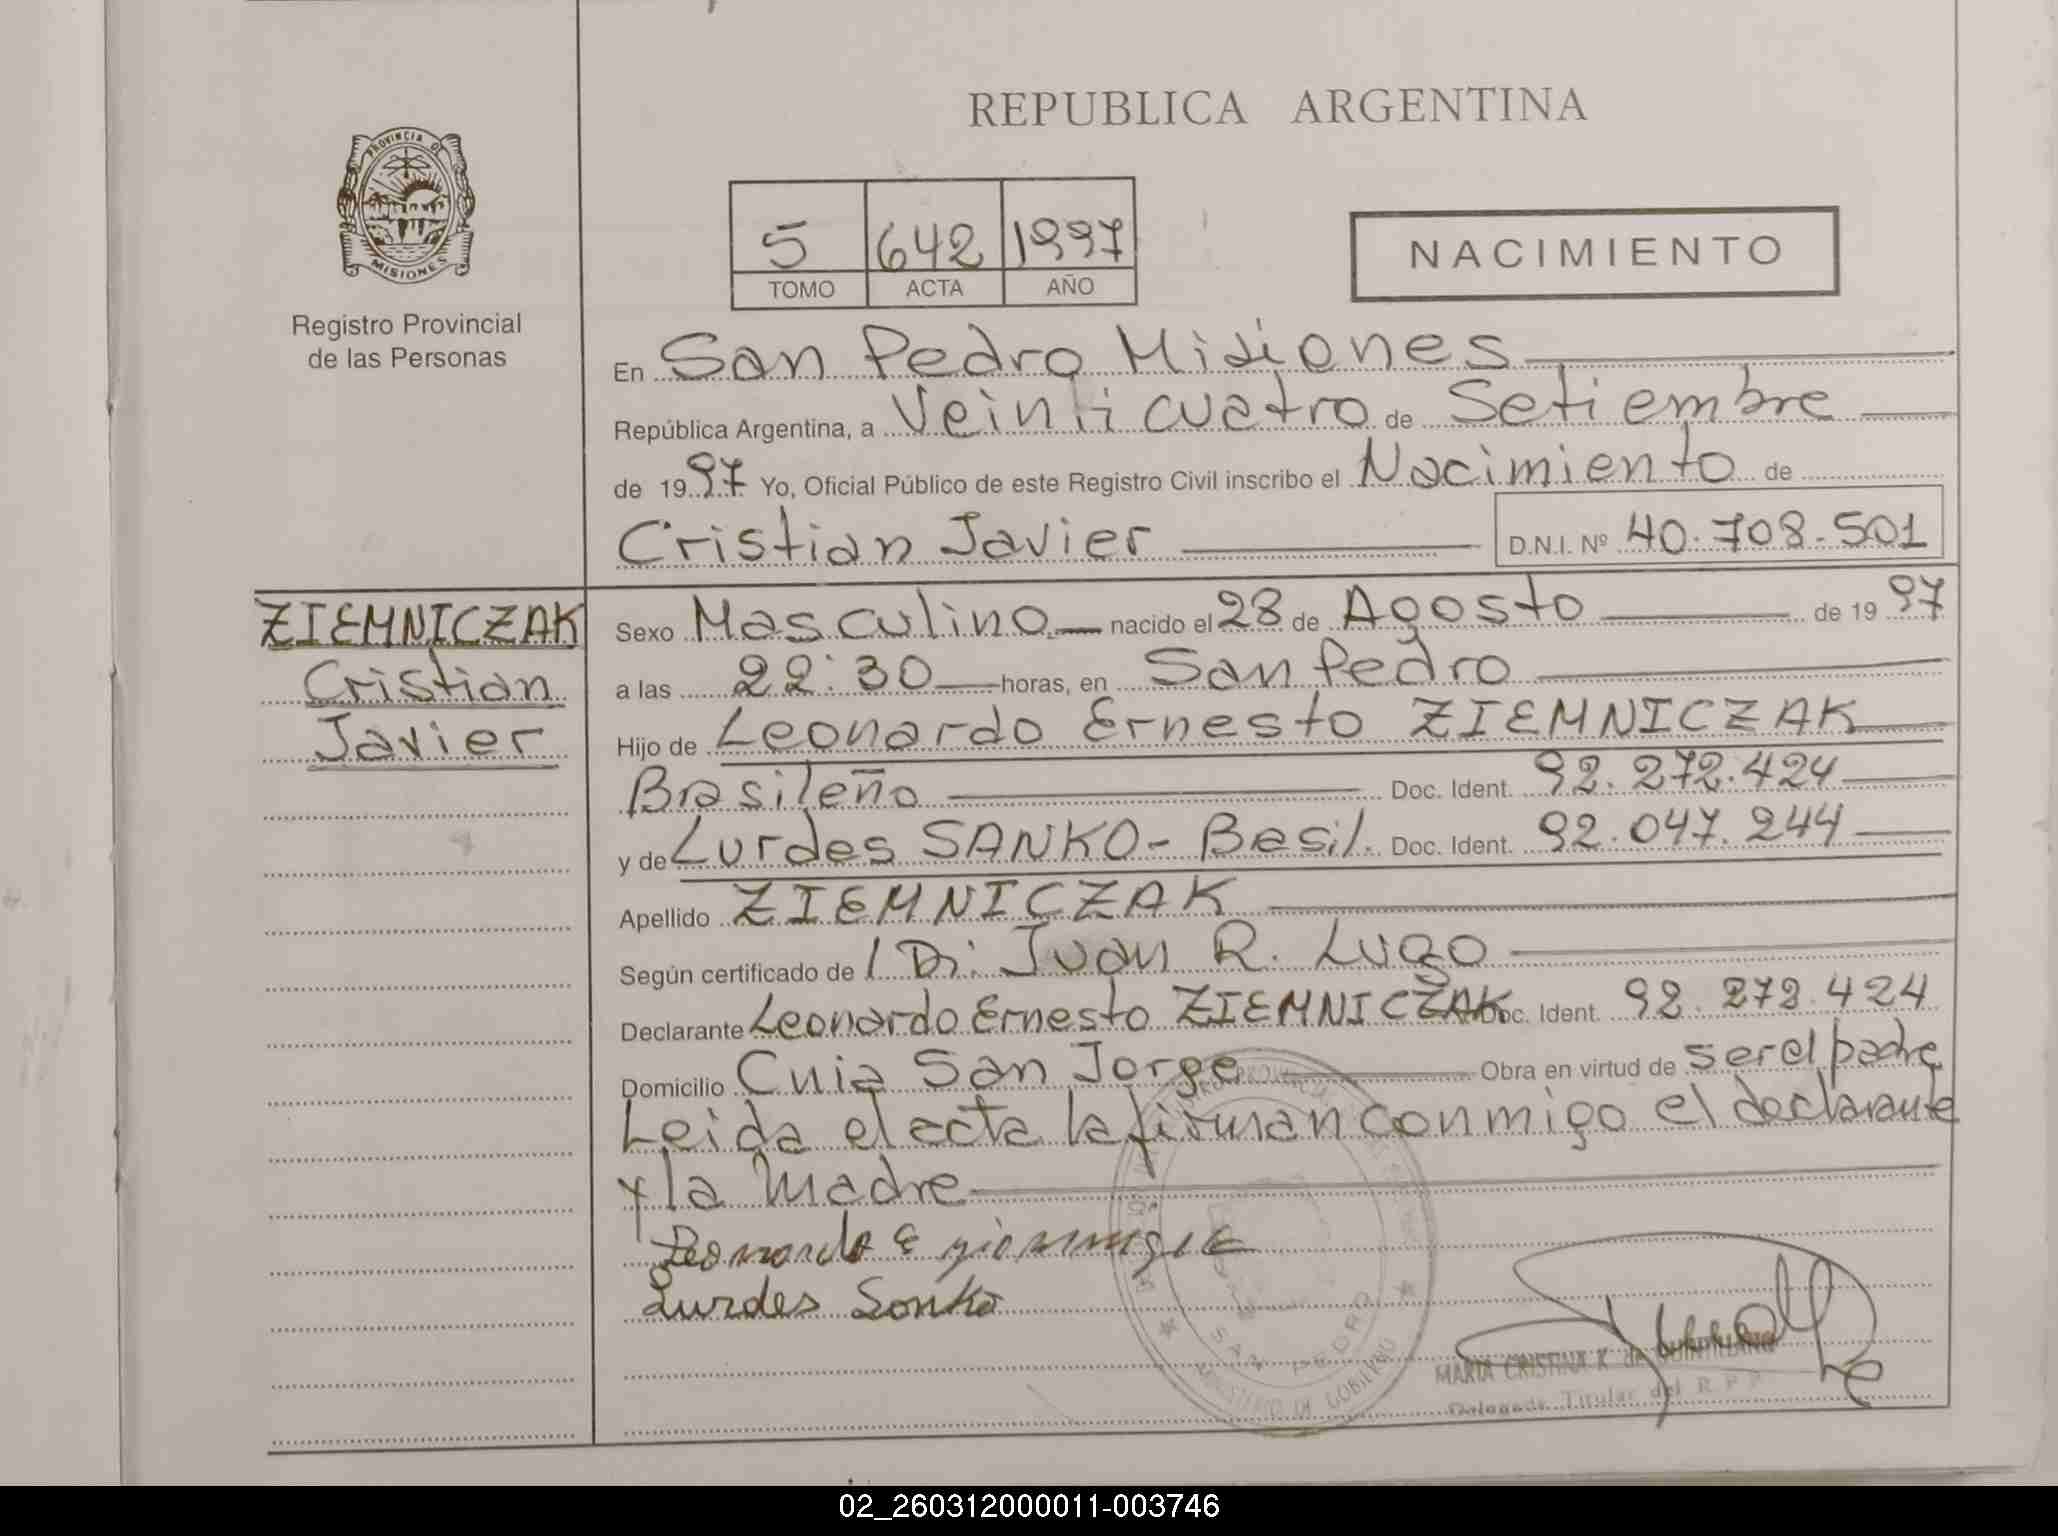 REPUBLICA ARGENTINA
PROVINCIA DE
MISIONES
Registro Provincial
de las Personas
5 642 1997
TOMO ACTA AÑO
NACIMIENTO
En San Pedro Misiones
República Argentina, a Veinti cuatro de Setiembre
de 1997 Yo, Oficial Público de este Registro Civil inscribo el Nacimiento de
Cristian Javier D.N.I. Nº 40.708.501
ZIEMNICZAK
Cristian
Javier
Sexo Masculino nacido el 28 de Agosto de 1997
a las 22:30 horas, en San Pedro
Hijo de Leonardo Ernesto ZIEMNICZAK
Brasileño Doc. Ident. 92.272.424
y de Lurdes SANKO - Basil. Doc. Ident. 92.047.244
Apellido ZIEMNICZAK
Según certificado de / Dr. Juan R. Lugo
Declarante Leonardo Ernesto ZIEMNICZAK Doc. Ident. 92.272.424
Domicilio Cnia San Jorge Obra en virtud de ser el padre
Leida el acta la firman conmigo el declarante
y la Madre
Leonardo E
Lurdes Sonko
SAN PEDRO
MINISTERIO DE GOBIERNO
MARIA CRISTINA K. de QUINTILLANO
Delegada Titular del R.P.P.
02_260312000011-003746